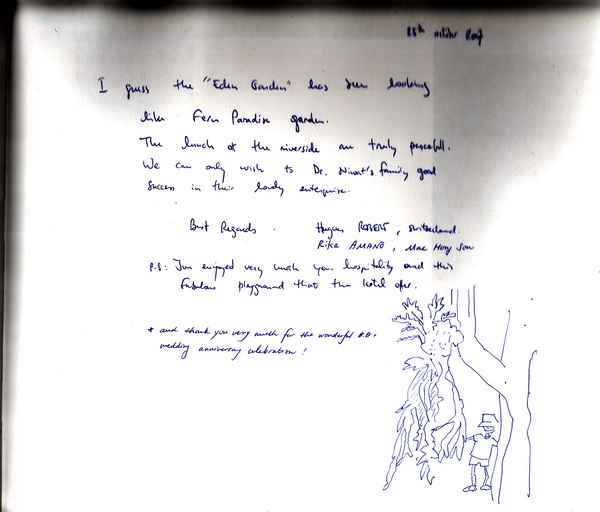 october 2007
I guess the "Eden Garden" has been looking
like Fern Paradise garden.
The lunch at the riverside are truly peacefull.
We can only wish to Dr. Niwat's family good
success in their lovely enterprise.
Best Regards. Hugues ROBERT, Switzerland.
Rika AMANO, Mae Hong Son
P.S: Jun enjoyed very much your hospitality and this
fabulous playground that the hotel offer.
* and thank you very much for the wonderful B.D.
wedding anniversary celebration!